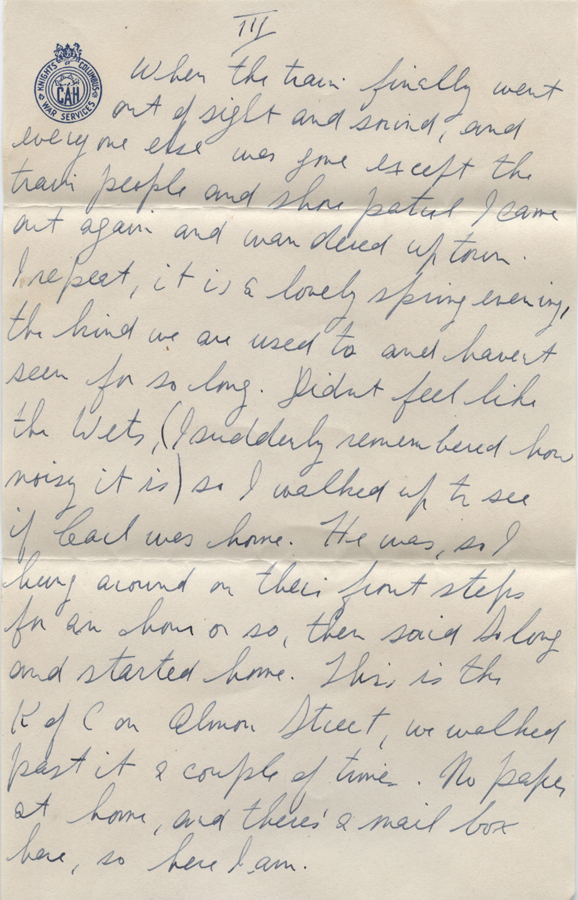 III
KNIGHTS OF COLUMBUS
CAH
WAR SERVICES
When the train finally went
out of sight and sound, and
everyone else was gone except the
train people and shore patrol I came
out again and wandered up town.
I repeat, it is a lovely spring evening,
the kind we are used to and havent
seen for so long. Didnt feel like
the Wets, (I suddenly remembered how
noisy it is) so I walked up to see
if Carl was home. He was, so I
hung around on their front steps
for an hour or so, then said So long
and started home. This is the
K of C on Almon Street, we walked
past it a couple of times. No paper
at home, and there's a mail box
here, so here I am.